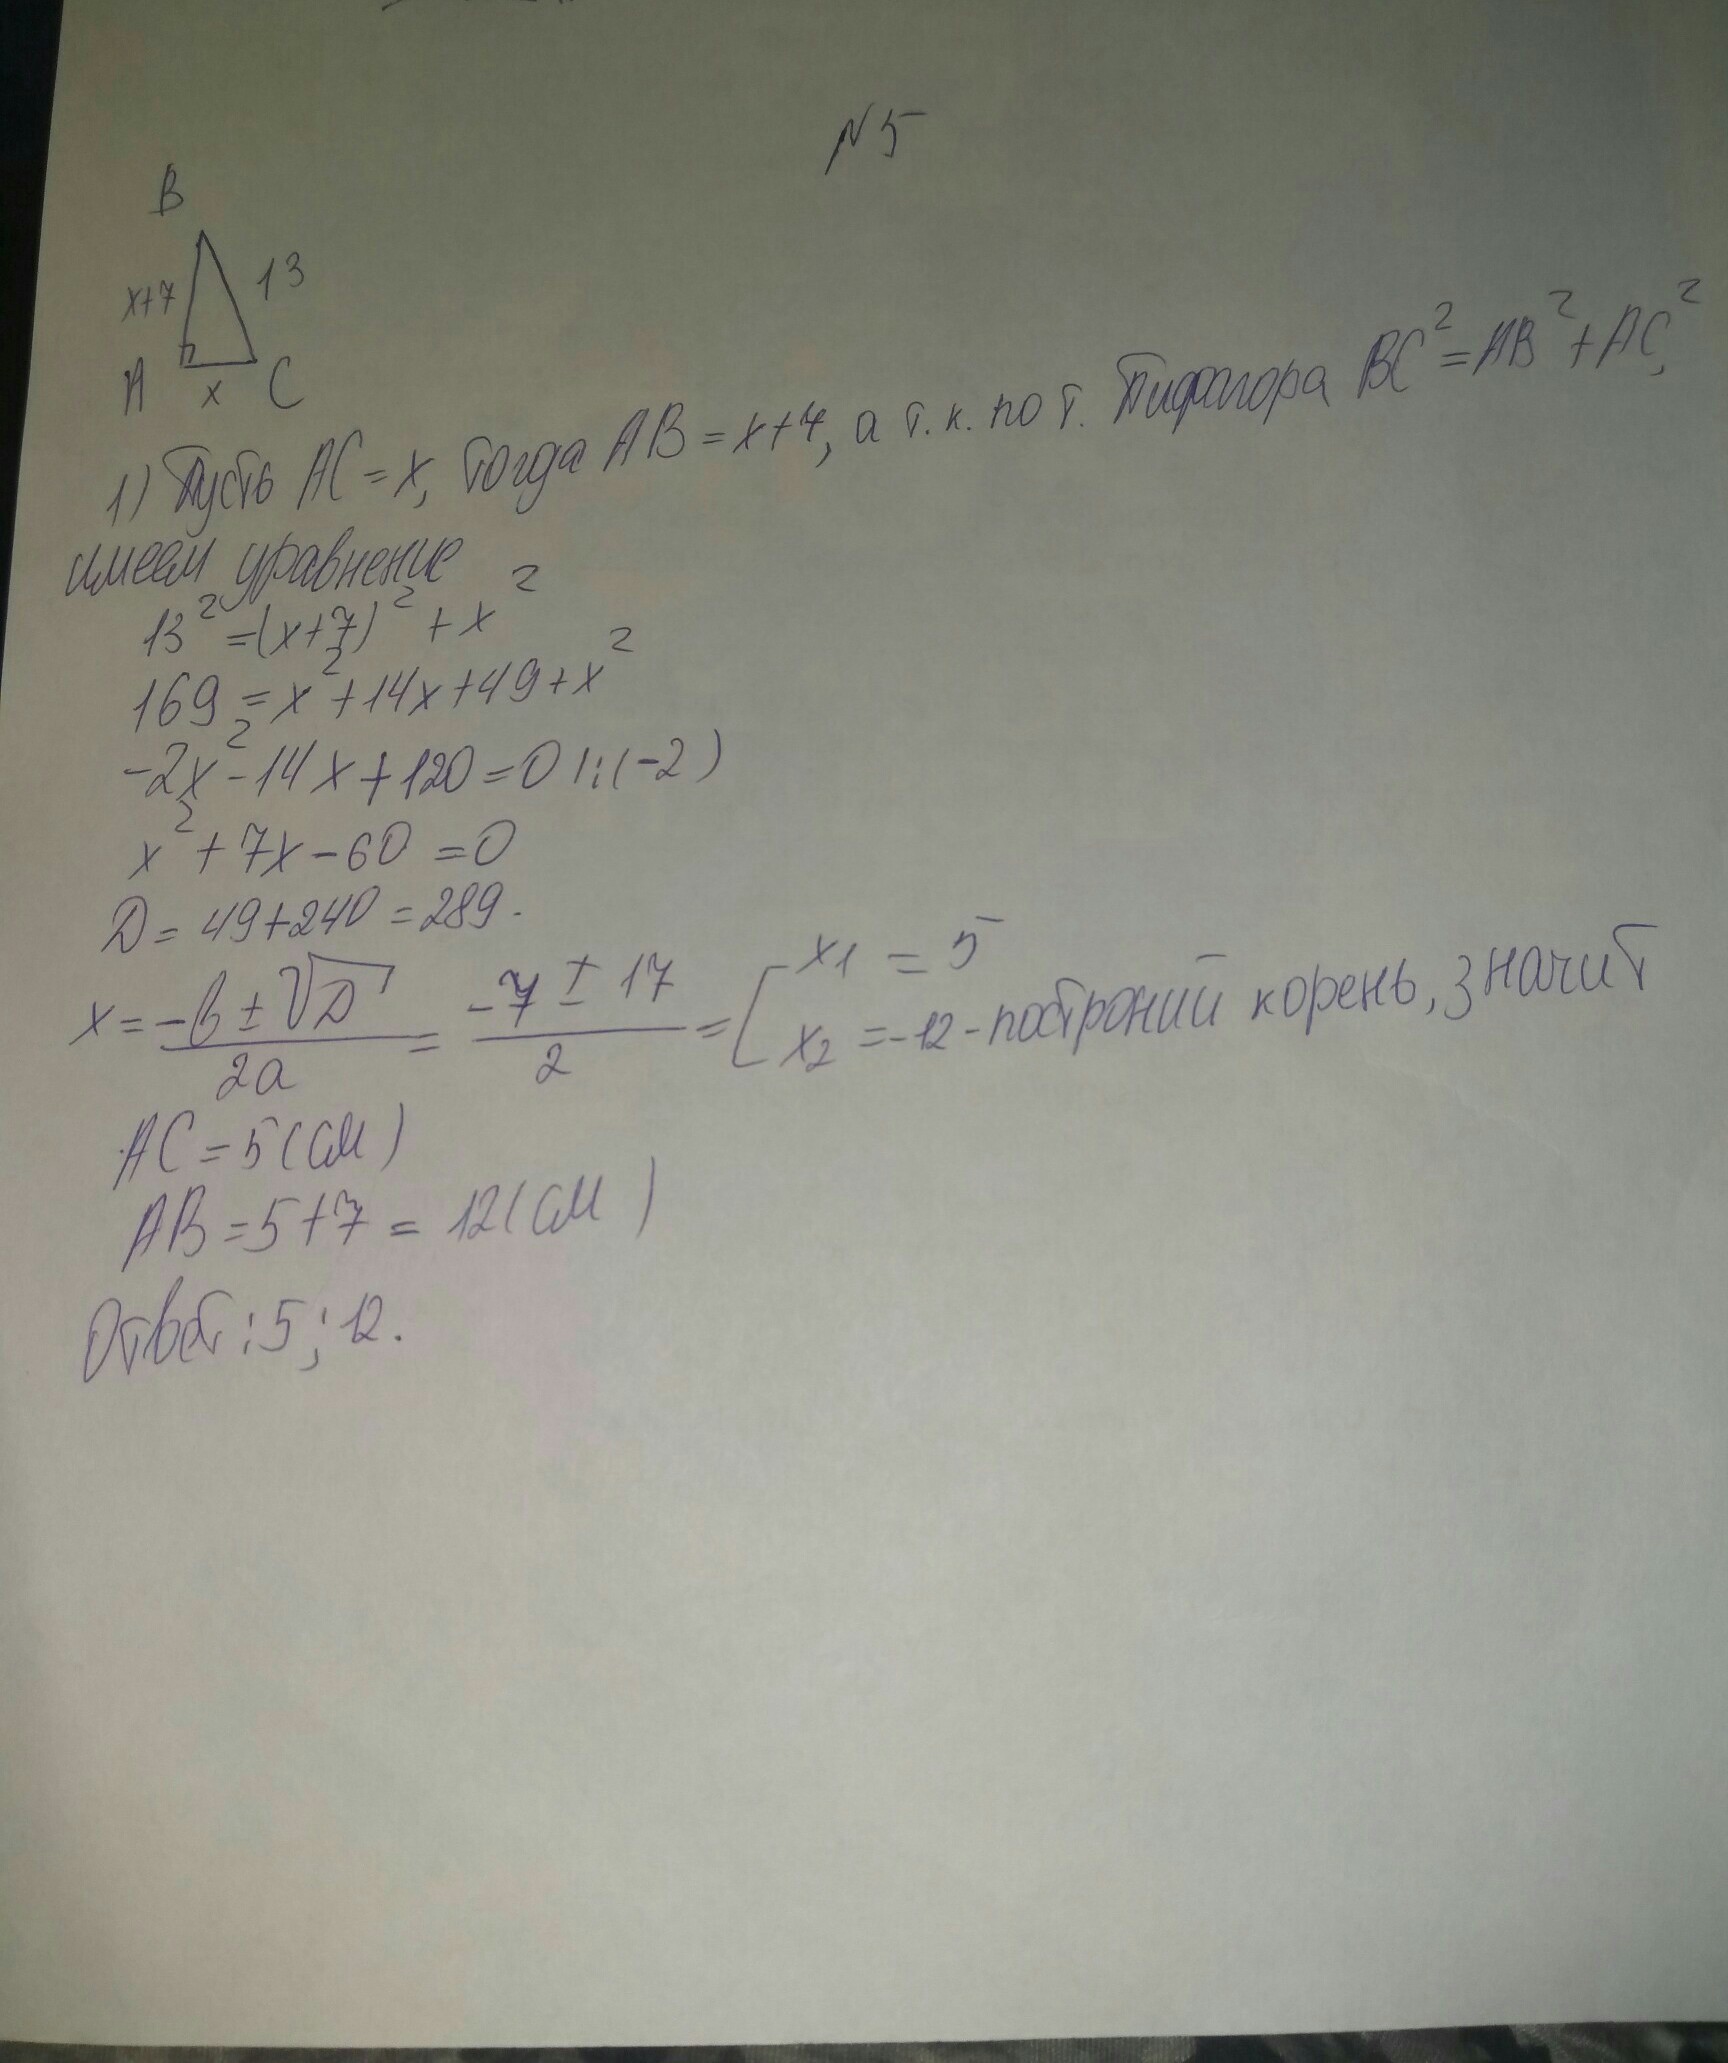 N5
B
x+7 13
A x C
1) Пусть AC = x, тогда AB = x+7, а т.к. по т. Пифагора BC² = AB² + AC²,
имеем уравнение
13² = (x+7)² + x²
169 = x² + 14x + 49 + x²
-2x² - 14x + 120 = 0 |:(-2)
x² + 7x - 60 = 0
D = 49 + 240 = 289.
x = -b ± √D / 2a = -7 ± 17 / 2 = [ x1 = 5
x2 = -12 - построний корень, значит
AC = 5 (см)
AB = 5 + 7 = 12 (см)
Ответ: 5; 12.